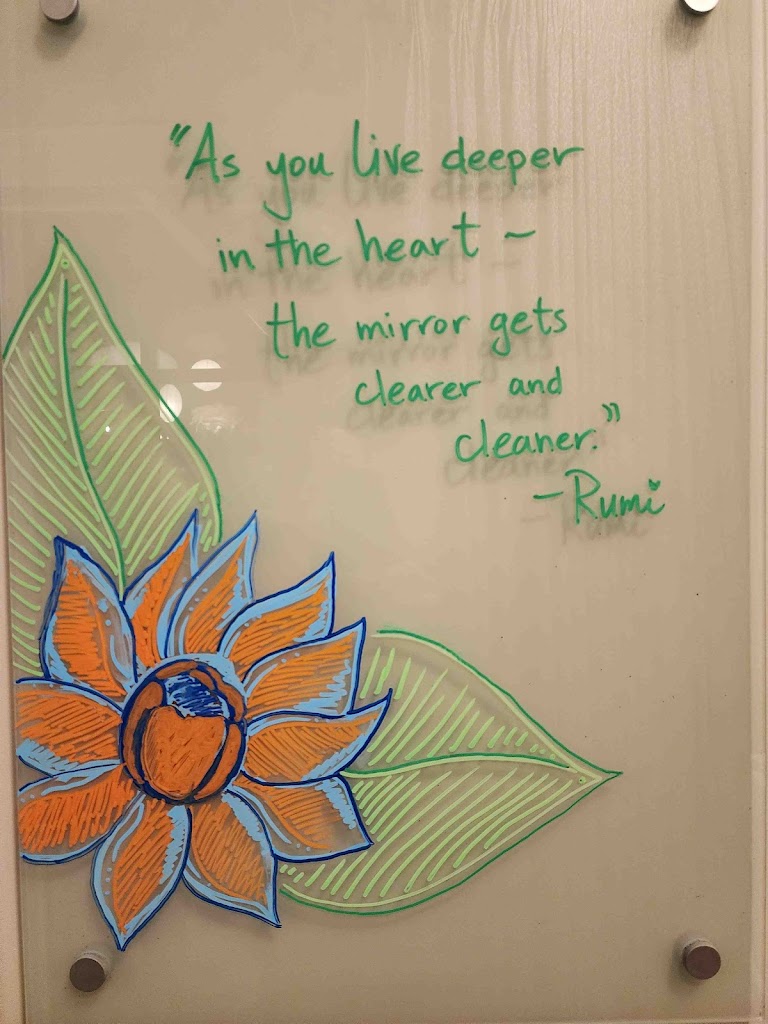 "As you live deeper
in the heart ~
the mirror gets
clearer and
cleaner."
- Rumi